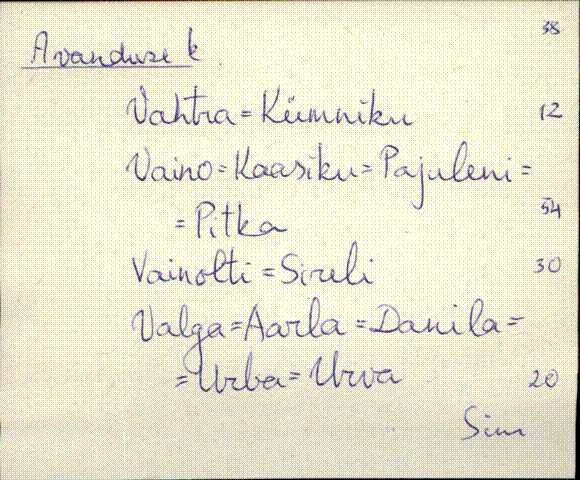 38
Avanduse k
Vahtra = Kümniku 12
Vaino = Kaasiku = Pajuleni =
= Pitka 54
Vainolti = Sireli 30
Valga = Aarla = Danila =
= Urba = Urva 20
Sim